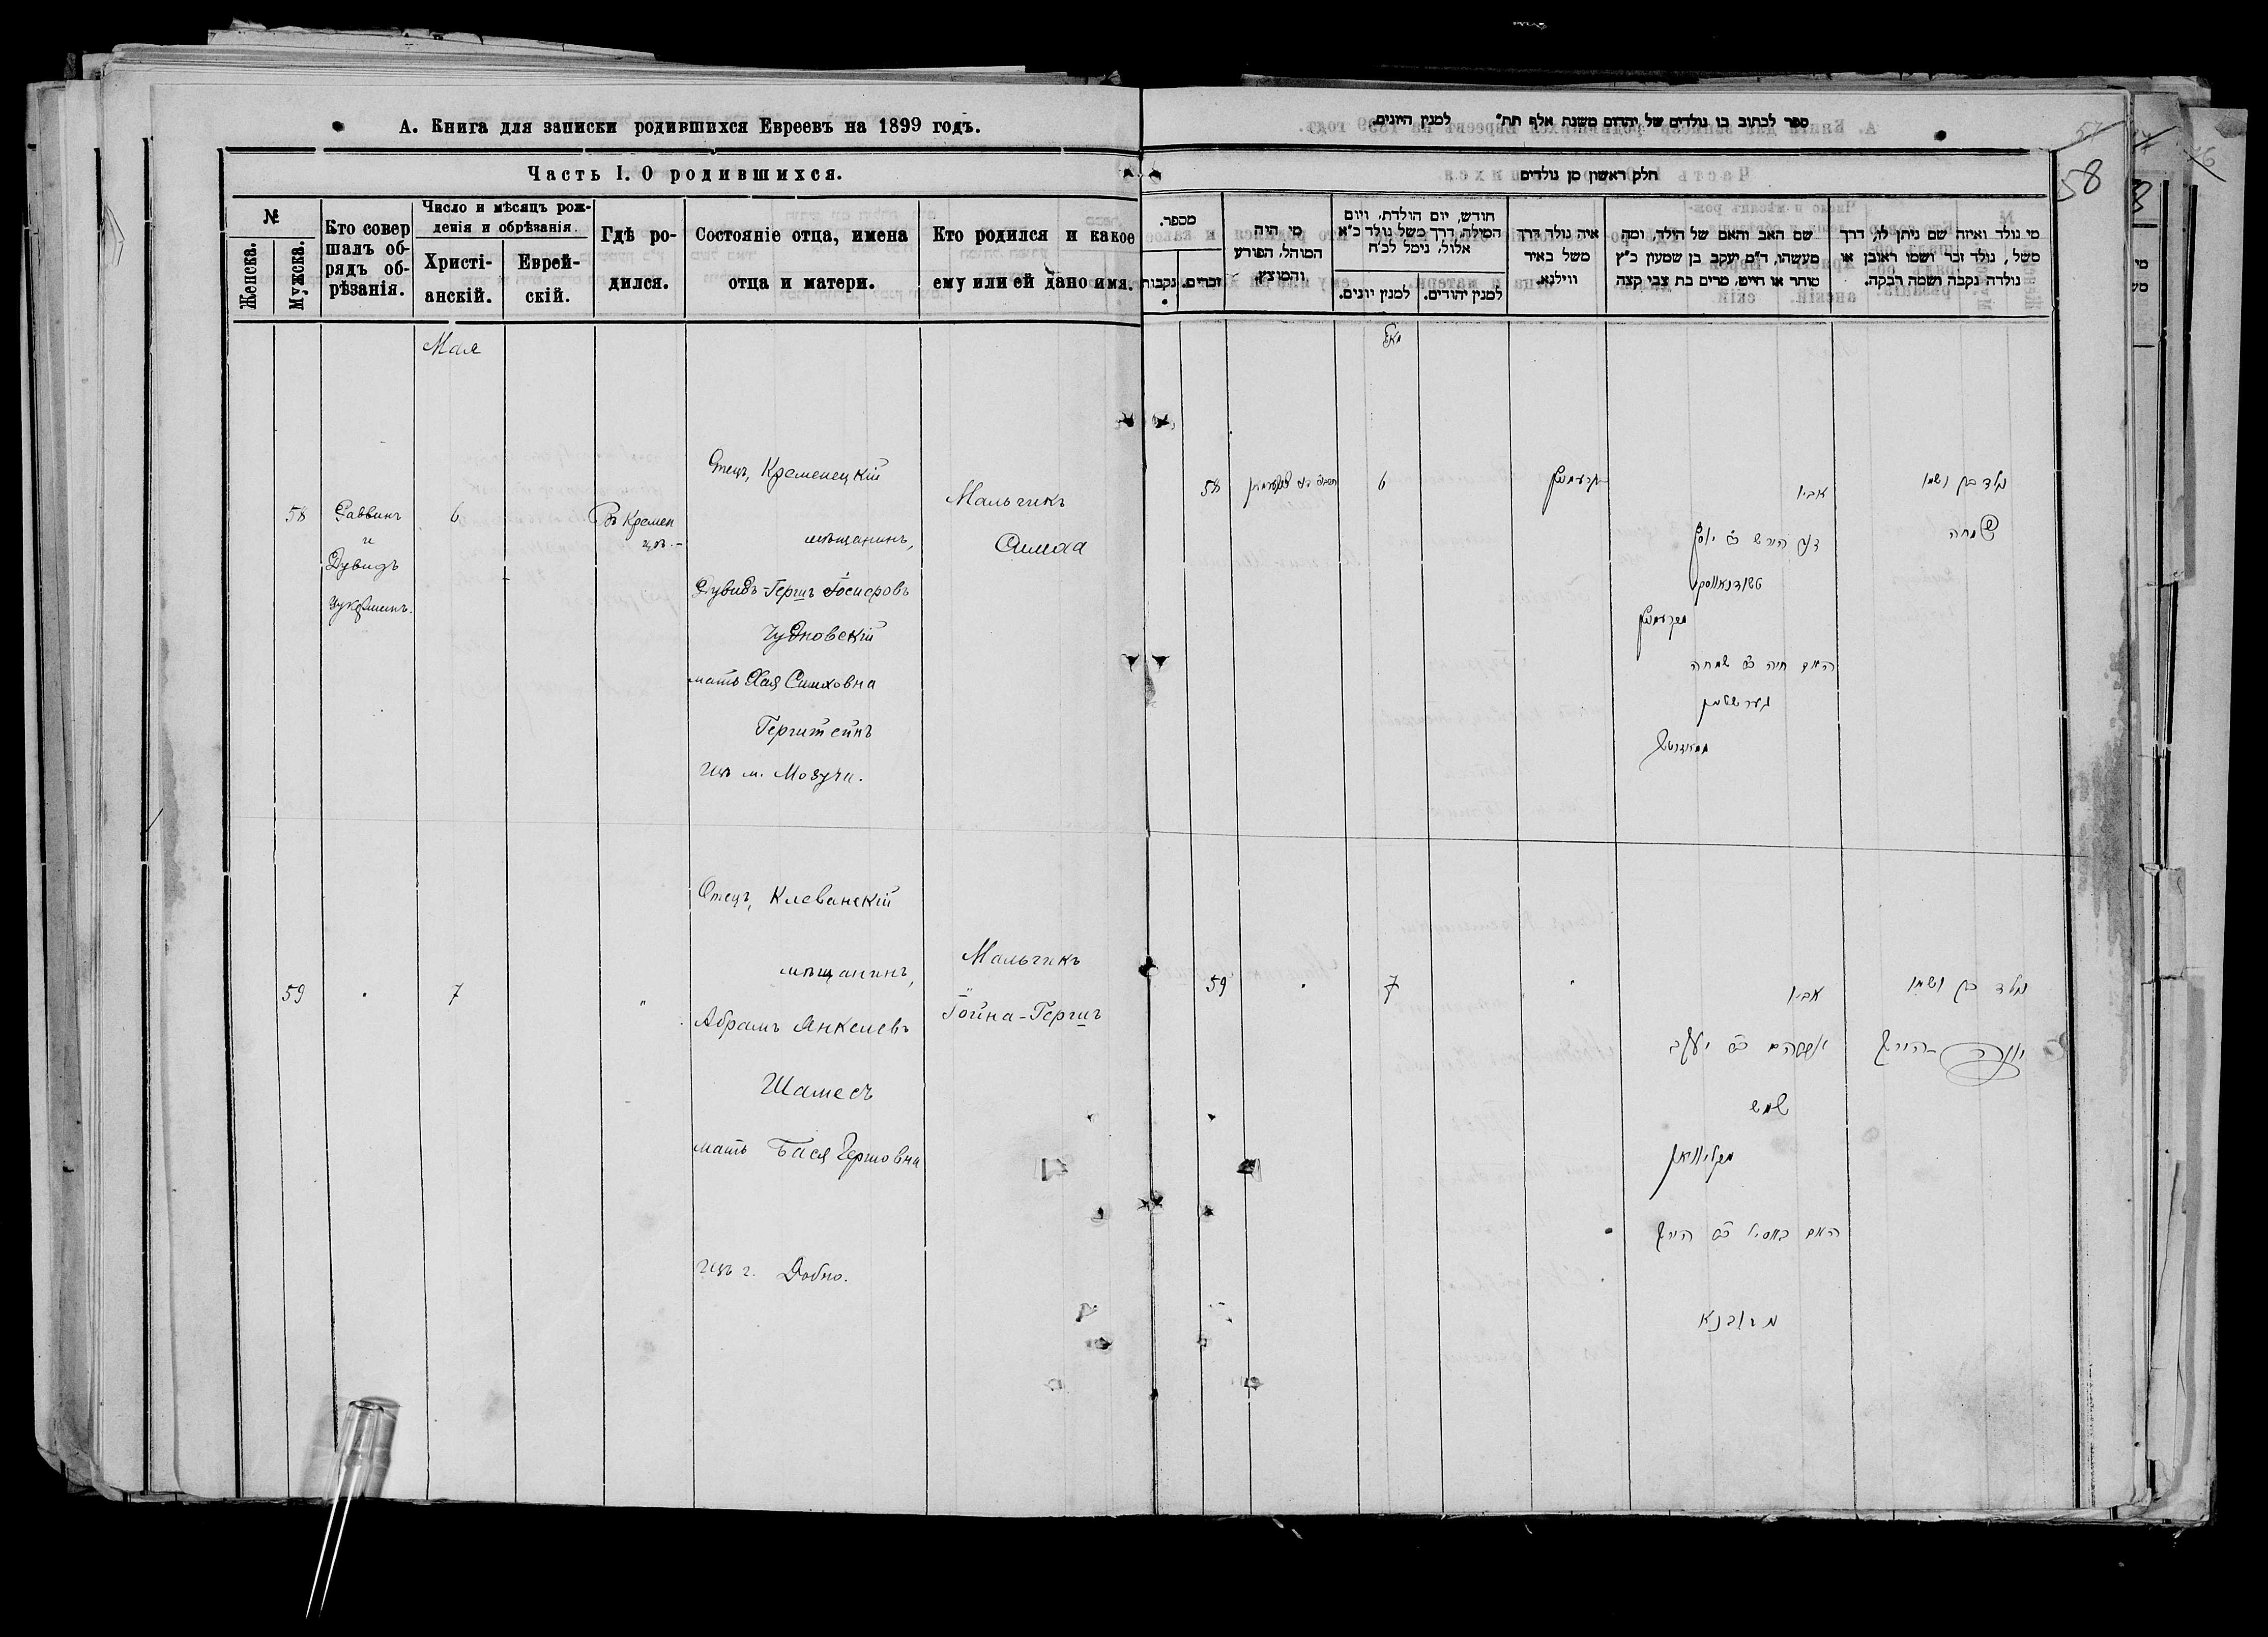 А. Книга для записки родившихся Евреевъ на 1899 годъ.
Часть I. О родившихся.
№
Женска.
Мужска.
Кто совер
шалъ об-
рядъ об-
рѣзанія.
Число и мѣсяцъ рож-
денія и обрѣзанія.
Христі-
анскій.
Еврей-
скій.
Гдѣ ро-
дился.
Состояніе отца, имена
отца и матери.
Кто родился и какое
ему или ей дано имя.
Мая
58
Раввинъ
и
Дувидъ
6
Въ Кремен
цѣ.-
Отецъ, Кременецкій
мѣщанинъ,
Дувидъ-Гершъ
Чудновскій
мать Хая Симховна
Герштейнъ
изъ м.
Мальчикъ
Симха
59
7
"
Отецъ, Клеванскій
мѣщанинъ,
Абрамъ Янкелевъ
Шамесъ
мать Бася Гершовна
изъ г. Дубно.
Мальчикъ
Іойна-Гершъ
ספר לכתוב בו נולדים של יהדום משנת אלף תת" למנין היונים.
58
חלק ראשון מן נולדים
מספר.
נקבות
זכרים.
מי היה
המוהל, הפורע
והמוצץ.
חודש, יום הולדת, ויום
המילה, דרך משל נולד כ"א
אלול, נימל לכ"ח
למנין יונים.
למנין יהודים.
איה נולד דרך
משל באיר
ווילנא.
שם האב והאם של הולד, ומה
מעשהו, ד"מ יעקב בן שמעון כ"ץ
סוחר או חייט, מרים בת צבי קצה
מי נולד ואיזה שם ניתן לו, דרך
משל, נולד זכר ושמו ראובן או
נולדה נקבה ושמה רבקה.
מאי
58
6
אביו
דוד הירש ב"ר יוסף
האם חיה ב"ר שמחה
גערשטיין
נולד בן ושמו
שמחה
59
7
אביו
אברהם ב"ר יעקב
שמש
האם באסיא ב"ר הירש
מדובנא
נולד בן ושמו
יונה-הירש